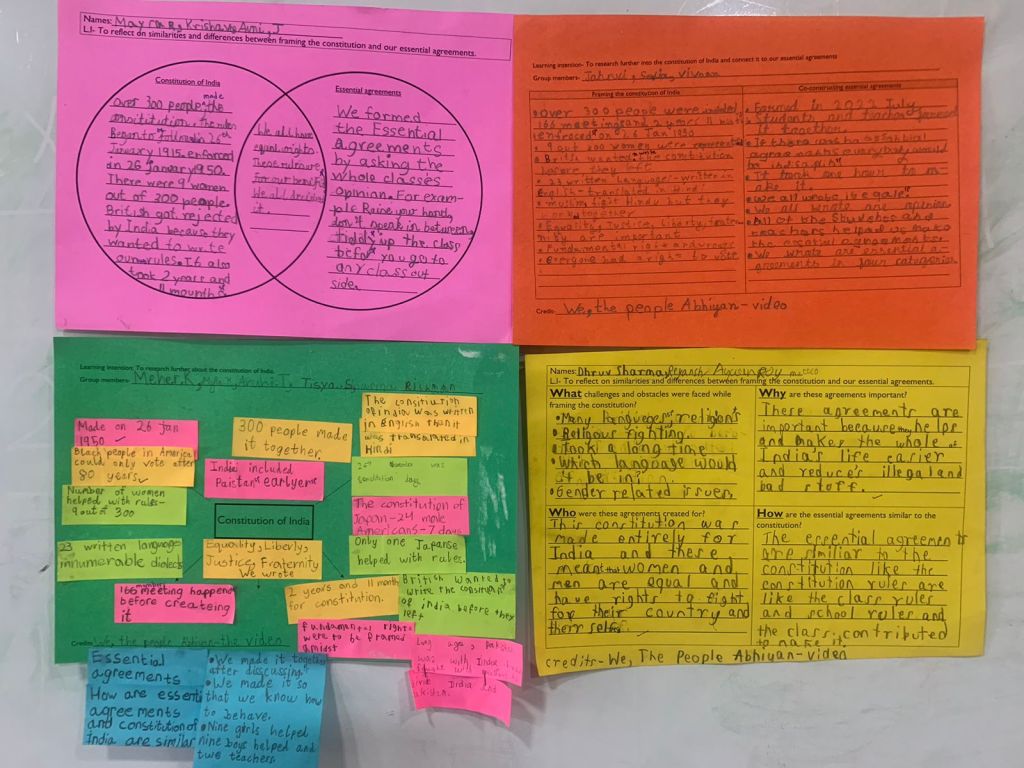 Names:
L.I- To reflect on similarities and differences between framing the constitution and our essential agreements.
Constitution of India
Over 300 people made the
constitution, The
Began to in 26th
January 1915. enforced
in 26 January 1950.
There were 9 women
out of 300 people.
British got rejected
by India because they
wanted to write
our rules. It also
took 2 years and
11 mounths
We all have
equal rights
These rules are
For our benefit
We all
it.
Essential agreements
We formed
the Essential
agreements
by asking the
whole classes
opinion. For exam-
ple Raise your hand,
don't speak in between,
tiddly up the class
before you go to
any class out
side.
Learning intention- To research further into the constitution of India and connect it to our essential agreements
Group members- Jahnvi, Vivaan
Framing the constitution of India
Over 300 people were included,
166 meetings and 2 years 11
enforced on 26 Jan 1950
9 out 300 women were
British wanted the constitution
before they left
23 written languages - written in
English translated in Hindi
muslim fight Hindu but they
work together
Equality, Justice, liberty,
are important
Fundamental rights
Everyone had a right to vote
Co-constructing essential agreements
Formed in 2022 July
Students and teacher formed
it together.
If there are no essential
agreements everybody would
be
It took one hour to m-
ake it.
We all wrote
We all wrote are opinion
All of the Students and
teachers helped us make
the essential agreements.
We wrote are essential a-
greements in four categories
Credit- We, the people Abhiyan- video
Learning intention: To research further about the constitution of India.
Group members- Meher.K, Tisya
Made on 26 Jan
1950
Black people in America
could only vote after
80 years
Number of women
helped with rules-
9 out of 300
300 people made
it together
India included
Pakistan earlyer
The constitution
of india was written
in English then it
was translated in
Hindi
26th was
constitution day
The constitution of
Japan -24 male
Americans - 7 days
Constitution of India
Only one Japanse
helped with rules.
23 written language
innumerable dialects
Equality, Liberty,
Justice, Fraternity
We wrote
166 meeting happend
before createing
it
2 years and 11 month
for constitution.
British wanted to
write the constitution
of india before they
left
fundamental right
were to be framed
amidst
Long ago,
was with India
India and
Credits We, the people Abhiyan-the video
Essential
agreements
How are essenti
agreements
and constitution of
India are similar
We made it together
after discussing.
We made it so
that we know how
to behave.
Nine girls helped
nine boys helped and
two teachers.
Names: Dhruv Sharma,
L.I- To reflect on similarities and differences between framing the constitution and our essential agreements.
What challenges and obstacles were faced while
framing the constitution?
Many languages religions
Religous righting.
Took a long time
Which language would
it be in.
Gender related issues
Why are these agreements important?
These agreements are
important because they helps
and makes the whole of
India's life easier
and reduce's illegal and
bad stuff.
Who were these agreements created for?
This constitution was
made entirely for
India and these
meant women and
men are equal and
have rights to fight
for their country and
their self.
How are the essential agreements similar to the
constitution?
The essential agreements
are similiar to the
constitution like the
constitution rules are
like the class rules
and school rules and
the class contributed
to make it.
credits- We, The People Abhiyan- video